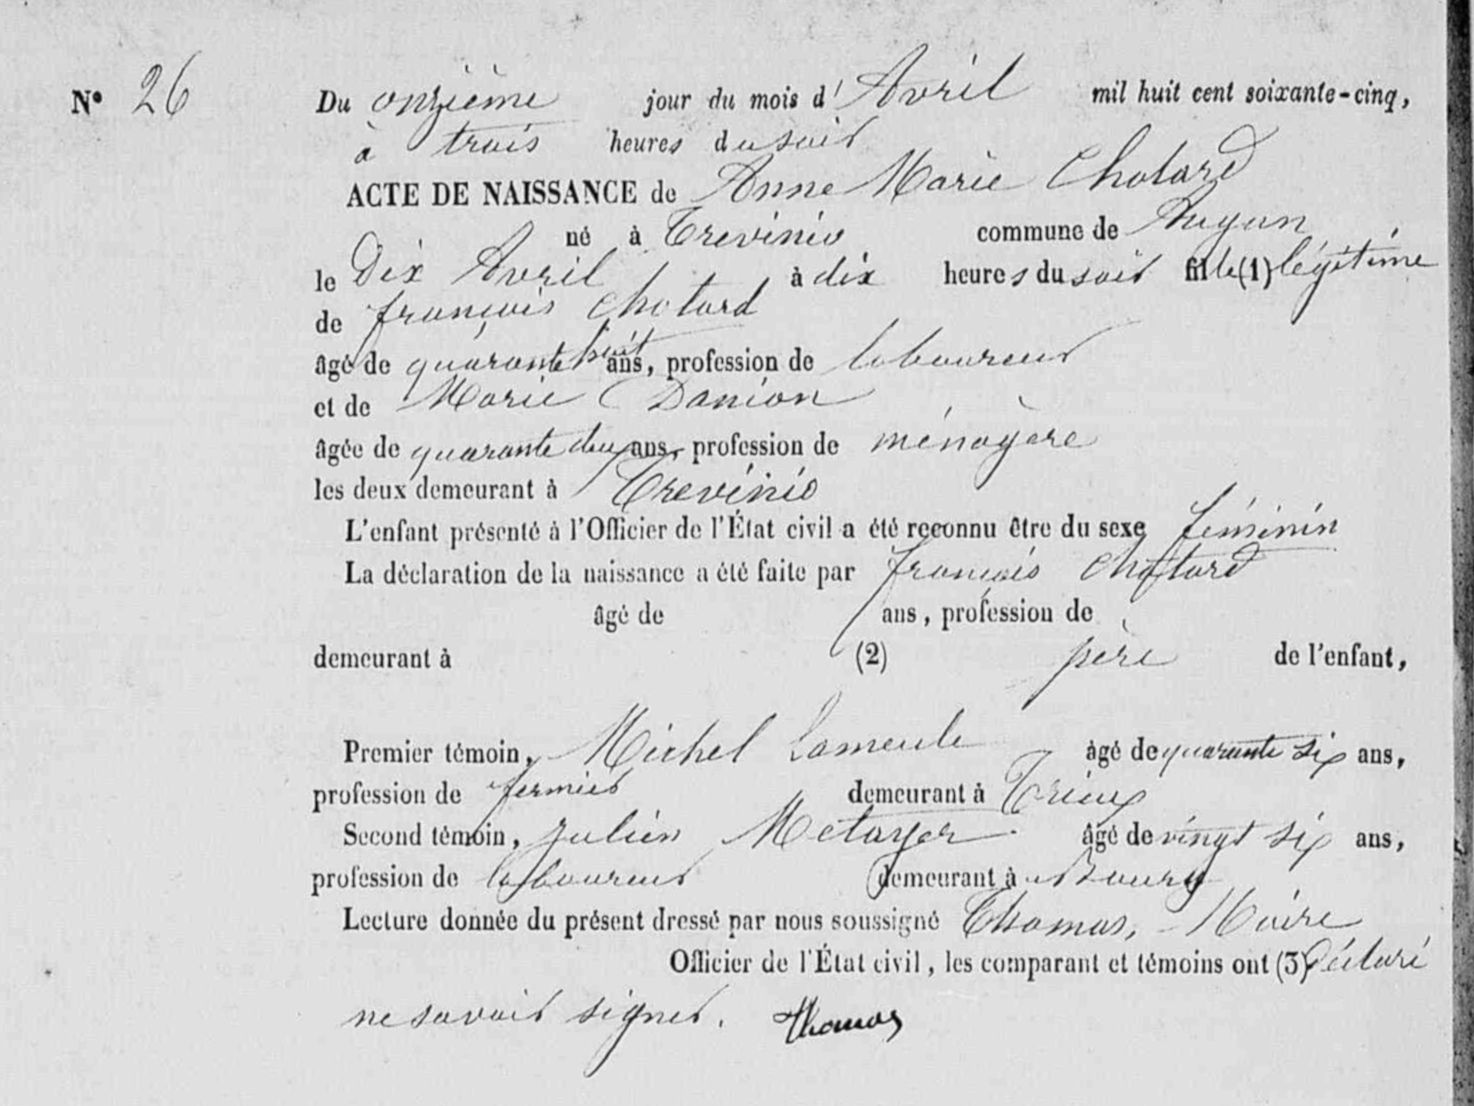 N° 26
Du onzième jour du mois d'Avril mil huit cent soixante-cinq,
à trois heures du soir
ACTE DE NAISSANCE de Anne Marie Chotard
né à Trevinio commune de Augan
le Dix Avril à dix heures du soir fille (1) légitime
de françois Chotard
âgé de quarante huit ans, profession de laboureur
et de Marie Danion
âgée de quarante deux ans, profession de ménagère
les deux demeurant à Trevinio
L'enfant présenté à l'Officier de l'État civil a été reconnu être du sexe féminin
La déclaration de la naissance a été faite par françois Chotard
âgé de ans, profession de
demeurant à (2) père de l'enfant,
Premier témoin, Michel Lameule âgé de quarante six ans,
profession de fermier demeurant à Trieux
Second témoin, julien Metayer âgé de vingt six ans,
profession de laboureur demeurant à Bourg
Lecture donnée du présent dressé par nous soussigné Thomas, Maire
Officier de l'État civil, les comparant et témoins ont (3) déclaré
ne savoir signer. Thomas